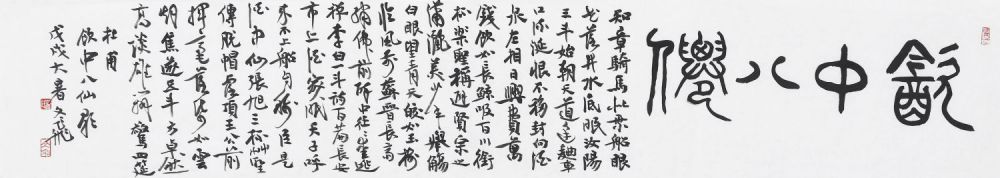 飲中八僊
知章騎馬似乘船眼
花落井水底眠汝陽
三斗始朝天道逢麴車
口流涎恨不移封向酒
泉左相日興費萬
錢飲如長鯨吸百川銜
杯樂聖稱避賢宗之
瀟灑美少年舉觴
白眼望青天皎如玉樹
臨風前蘇晉長齋
繡佛前醉中往往愛逃
禪李白一斗詩百篇長安
市上酒家眠天子呼
來不上船自稱臣是
酒中仙張旭三杯草聖
傳脫帽露頂王公前
揮毫落紙如雲
煙焦遂五斗方卓然
高談雄辯驚四筵
杜甫
飲中八仙歌
戊戌大暑文飛